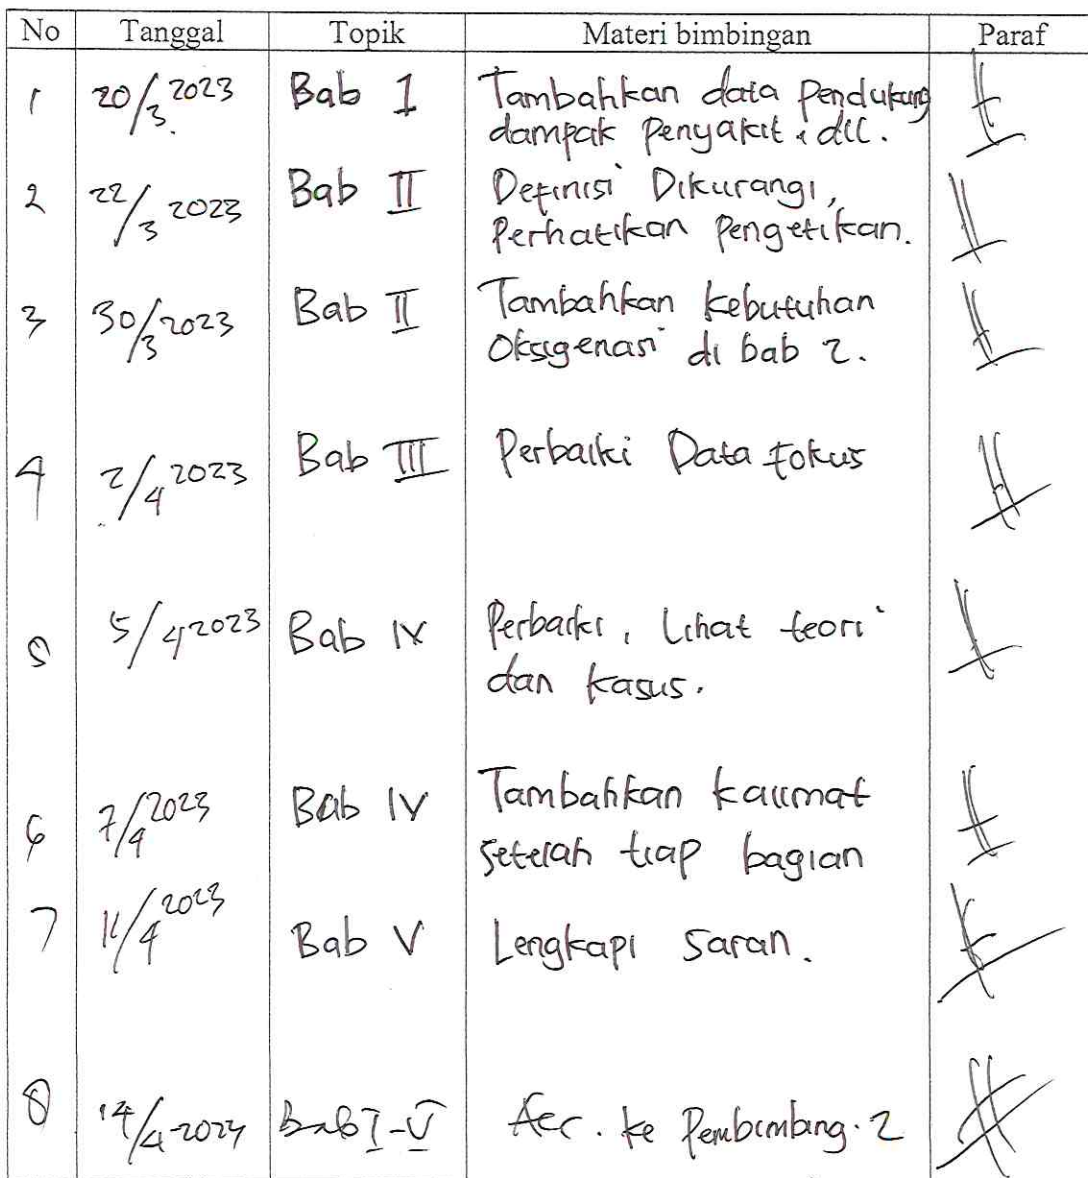 No Tanggal Topik Materi bimbingan Paraf
1 20/3 2023 Bab I Tambahkan data Pendukung
dampak Penyakit, dll.
2 22/3 2023 Bab II Definisi Dikurangi,
Perhatikan Pengetikan.
3 30/3 2023 Bab II Tambahkan kebutuhan
Oksigenasi di bab 2.
4 2/4 2023 Bab III Perbaiki Data fokus
5 5/4 2023 Bab IV Perbaiki, Lihat teori
dan kasus.
6 7/4 2023 Bab IV Tambahkan kalimat
setelah tiap bagian
7 11/4 2023 Bab V Lengkapi saran.
8 14/4 2024 Bab I-V Acc. ke Pembimbing. 2